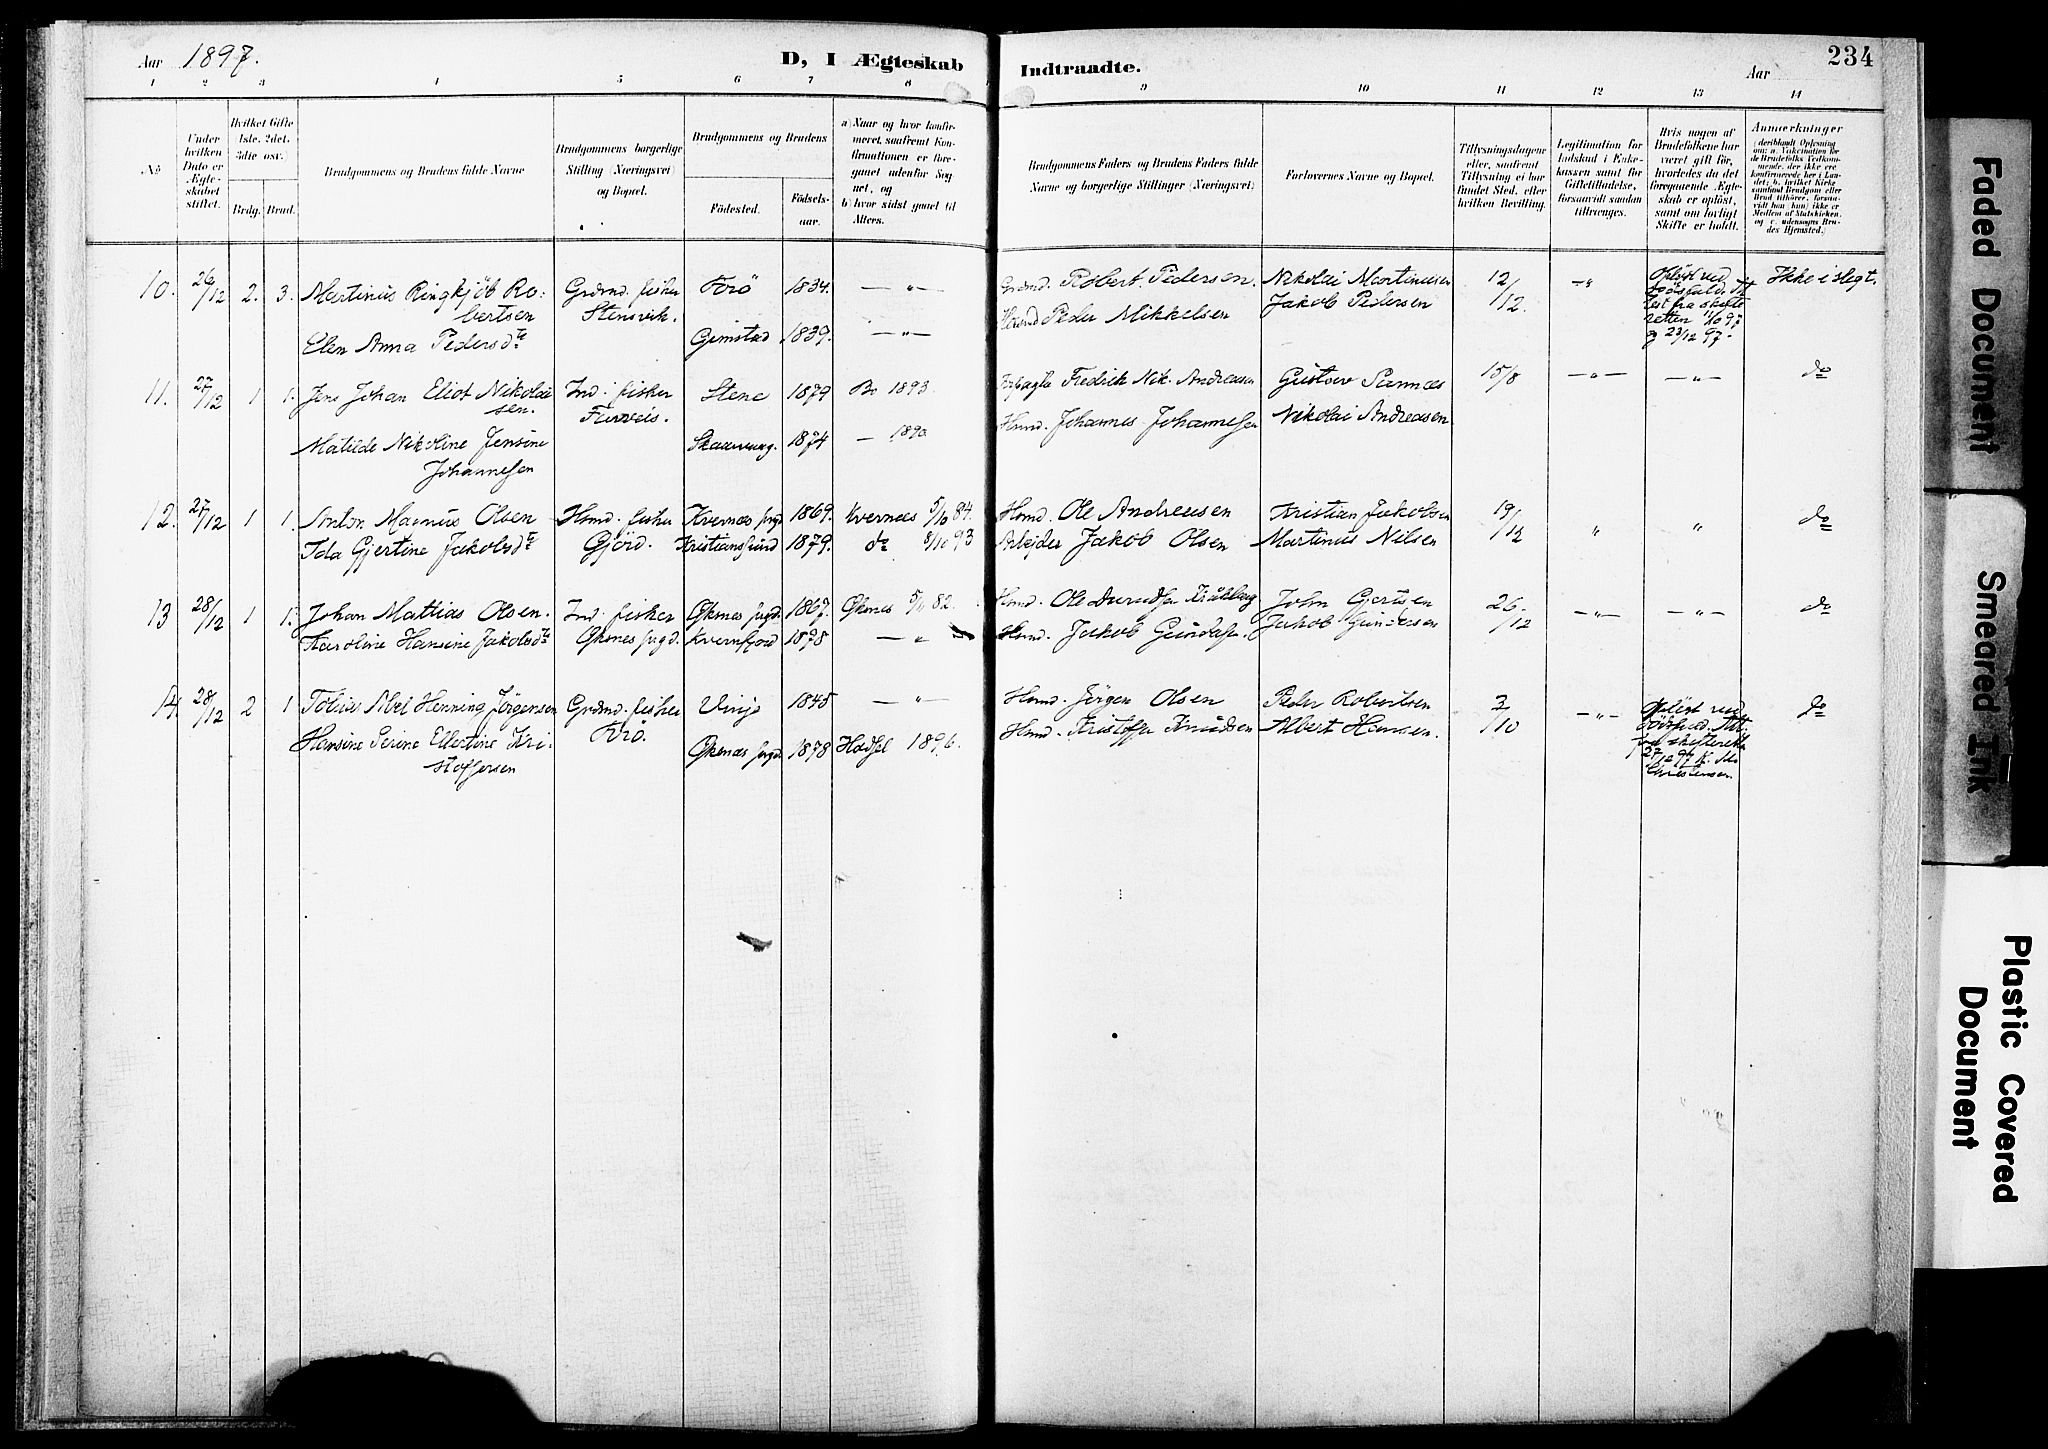 Aar 1897. D, I Ægteskab Indtraadte. Aar 234
1 2 3 4 5 6 7 8 9 10 11 12 13 14
No
Under hvilken Dato er Ægteskabet stiftet.
Hvilket Gifte
1ste. 2det.
3die osv.)
Brdg. Brud.
Brudgommens og Brudens fulde Navne
Brudgommens borgerlige
Stilling (Næringsvei)
og Bopæl.
Brudgommens og Brudens
Fødested.
Fødselsaar.
a) Naar og hvor konfirmeret, saafremt Konfirmationen er foregaaet udenfor Sognet, og
b) hvor sidst gaaet til Alters.
Brudgommens Faders og Brudens Faders fulde
Navne og borgerlige Stillinger (Næringsvei)
Forlovernes Navne og Bopæl.
Tillysningsdagene
eller, saafremt
Tillysning ei har
fundet Sted, efter
hvilken Bevilling.
Legitimation for
Indskud i Enkekassen samt for
Giftetilladelse,
forsaavidt saadan
tiltrænges.
Hvis nogen af
Brudefolkene har
været gift før,
hvorledes da det
foregaaende Ægteskab er opløst,
samt om lovligt
Skifte er holdt.
Anmærkninger
10. 26/12 2. 3. Martinus Ringkjöb Ro- Grdmd. fisker Frö 1834. — " — Grdmd. Robert Pedersen. Nikolai Martinusen 12/12 — " Ikke i slegt.
bertsen Stensvik.
Elen Anna Pedersdtr Gimstad 1839. — " — Husmd Peder Mikkelsen Jakob Pedersen
11. 27/12 1 1. Jens Johan Eliot Nikolai Ind. fisker Stene 1879 Bø 1893. Fredrik Nik. Andreassen Gustav Sannæs 15/8 — " — — " — do
sen.
Matilde Nikoline Jensine 1874 — 1890 Husmd. Johannes Johannesen Nikolai Andreasen
Johannesen
12. 27/12 1 1. Anton Magnus Olsen Husmd. fisher Kvernæs prgd 1869. Kvernæs 5/10 84. Husmd. Ole Andreasen Kristian Jakobsen 19/12 " " do
Ida Gjertine Jakobsdtr Gjörd. Kristiansund 1879. do 8/10 93 Arbejder Jakob Olsen Martinus Nilsen
13 28/12 1 1. Johan Mattias Olsen. Ind. fisker Øksnes prgd. 1867. Øksnes 82. Husmd. Ole John Gjertsen 26/12 — " — — " — do
Karoline Hansine Jakobsdtr Øksnes prgd. Kvernfjord 1878 — " Husmd. Jakob Gundersen. Jakob Gundersen
14. 28/12 2 1 Tobias Abel Henning Jörgensen Grdmd. fisker Vinje 1845 — " — Husmd. Jörgen Olsen Peder Robertsen 3/10 — " — do
Hansine Serine Ellertine Kri- Frö. Øksnæs prgd 1878 Hadsel 1896. Husmd. Kristoffer Knudsen Albert Hansen.
stoffersen
Faded Document
Smeared Ink
Plastic Covered
Document